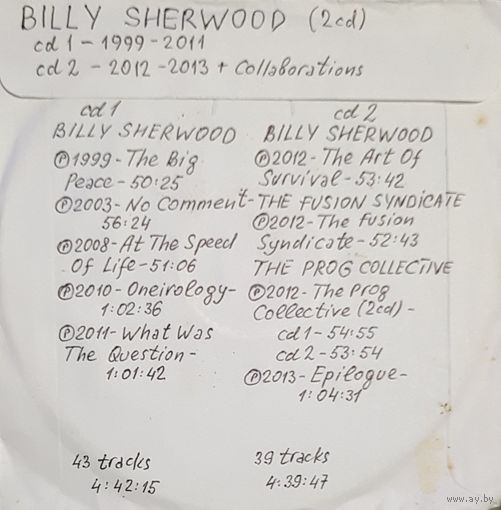 BILLY SHERWOOD (2cd)
cd 1 - 1999-2011
cd 2 - 2012-2013 + Collaborations
cd 1
BILLY SHERWOOD
Ⓟ1999-The Big
Peace-50:25
Ⓟ2003-No Comment-
56:24
Ⓟ2008-At The Speed
Of Life-51:06
Ⓟ2010-Oneirology-
1:02:36
Ⓟ2011-What Was
The Question-
1:01:42
43 tracks
4:42:15
cd 2
BILLY SHERWOOD
Ⓟ2012-The Art Of
Survival-53:42
THE FUSION SYNDICATE
Ⓟ2012-The Fusion
Syndicate-52:43
THE PROG COLLECTIVE
Ⓟ2012-The Prog
Collective (2cd)-
cd 1-54:55
cd 2-53:54
Ⓟ2013-Epilogue-
1:04:31
39 tracks
4:39:47
www.ay.by